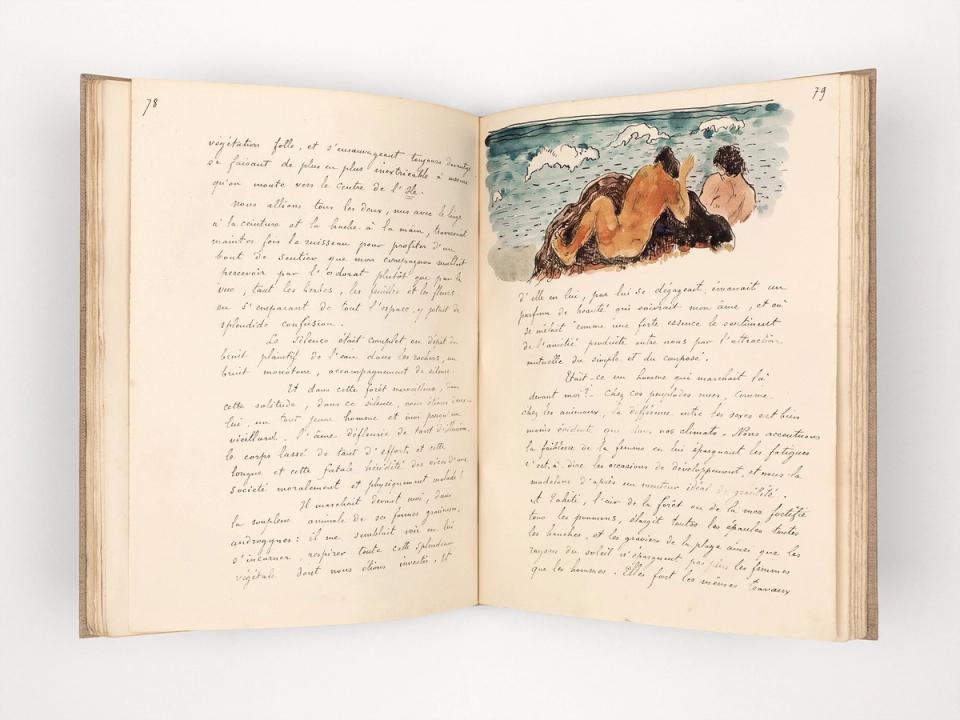 78
végétation folle, et s'ensauvageant toujours davantage
se faisant de plus en plus inextricable à mesure
qu'on monte vers le centre de l'Ile.
Nous allions tous les deux, nus avec le linge
à la ceinture et la hache à la main, traversant
maintes fois le ruisseau pour profiter d'un
bout de sentier que mon compagnon semblait
percevoir par l'odorat plutôt que par la
vue, tant les herbes, les feuilles et les fleurs
en s'emparant de tout l'espace, y jetait de
splendide confusion.
Le silence était complet en dépit du
bruit plaintif de l'eau dans les rochers, un
bruit monotone, accompagnement de silence.
Et dans cette forêt merveilleuse, dans
cette solitude, dans ce silence, nous étions deux —
lui, un tout jeune homme et moi presqu'un
vieillard, l'âme défleurie de tant d'illusions,
le corps lassé de tant d'efforts, et cette
longue et cette fatale hérédité des vices d'une
société moralement et physiquement malade!
Il marchait devant moi, dans
la souplesse animale de ses formes gracieuses,
androgynes: il me semblait voir en lui
s'incarner, respirer toute cette splendeur
végétale dont nous étions investis. Et
79
d'elle en lui, par lui se dégageait, émanait un
parfum de beauté qui enivrait mon âme, et où
se mêlait comme une forte essence le sentiment
de l'amitié produite entre nous par l'attraction
mutuelle du simple et du composé.
Était-ce un homme qui marchait là
devant moi?- Chez ces peuplades nues, comme
chez les animaux, la différence entre les sexes est bien
moins évidente que dans nos climats. Nous accentuons
la faiblesse de la femme en lui épargnant les fatigues
c'est à dire les occasions de développement, et nous la
modelons d'après un menteur idéal de gracilité.
A Tahiti, l'air de la forêt ou de la mer fortifie
tous les poumons, élargit toutes les épaules toutes
les hanches, et les graviers de la plage ainsi que les
rayons du soleil n'épargnent pas plus les femmes
que les hommes. Elles font les mêmes travaux